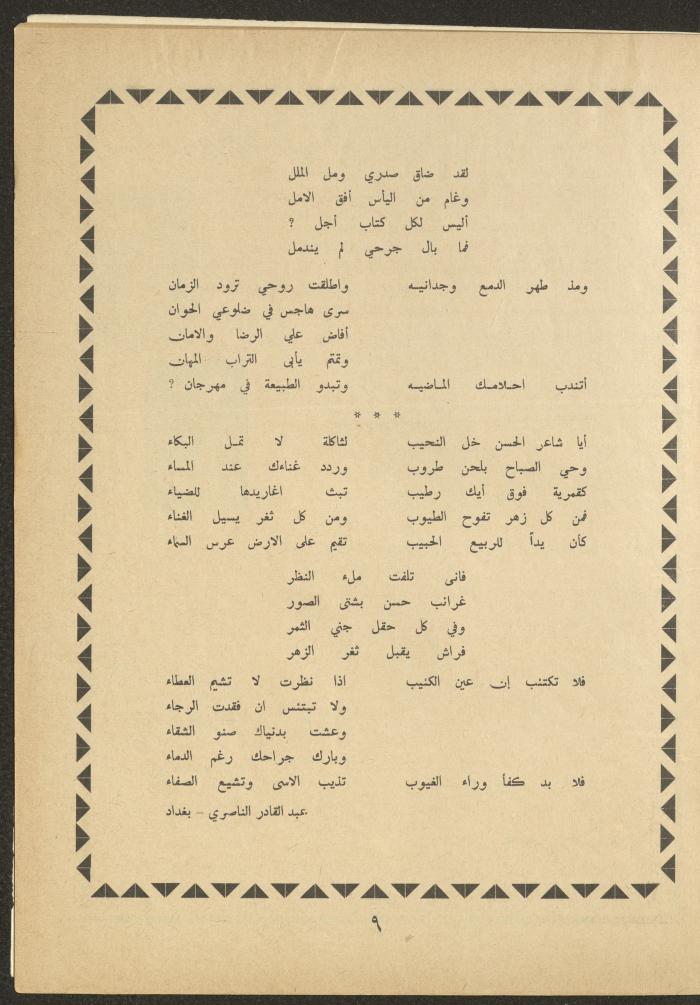 لقد ضاق صدري ومل الملل
وغام من اليأس أفق الامل
أليس لكل كتاب أجل ؟
فما بال جرحي لم يندمل
ومذ طهر الدمع وجدانيـه واطلقت روحي ترود الزمان
سرى هاجس في ضلوعي الحوان
أفاض علي الرضا والامان
وتمتم يأبى التراب المهان
أتندب احـلامـك المـاضيـه وتبدو الطبيعة في مهرجان ؟
* * *
أيا شاعر الحسن خل النحيب لثاكلة لا تمـل البكاء
وحي الصباح بلحن طروب وردد غناءك عند المساء
كقمرية فوق أيك رطيب تبث اغاريدها للضياء
فمن كل زهر تفوح الطيوب ومن كل ثغر يسيل الغناء
كأن يداً للربيع الحبيب تقيم على الارض عرس السماء
فانى تلفت ملء النظر
غرائب حسن بشتى الصور
وفي كل حقل جني الثمر
فراش يقبل ثغر الزهر
فلا تكتئب إن عين الكئيب اذا نظرت لا تشيم العطاء
ولا تبتئس ان فقدت الرجاء
وعشت بدنياك صنو الشقاء
وبارك جراحك رغم الدماء
فلا بد كفأ وراء الغيوب تذيب الاسى وتشيع الصفاء
عبد القادر الناصري – بغداد
٩